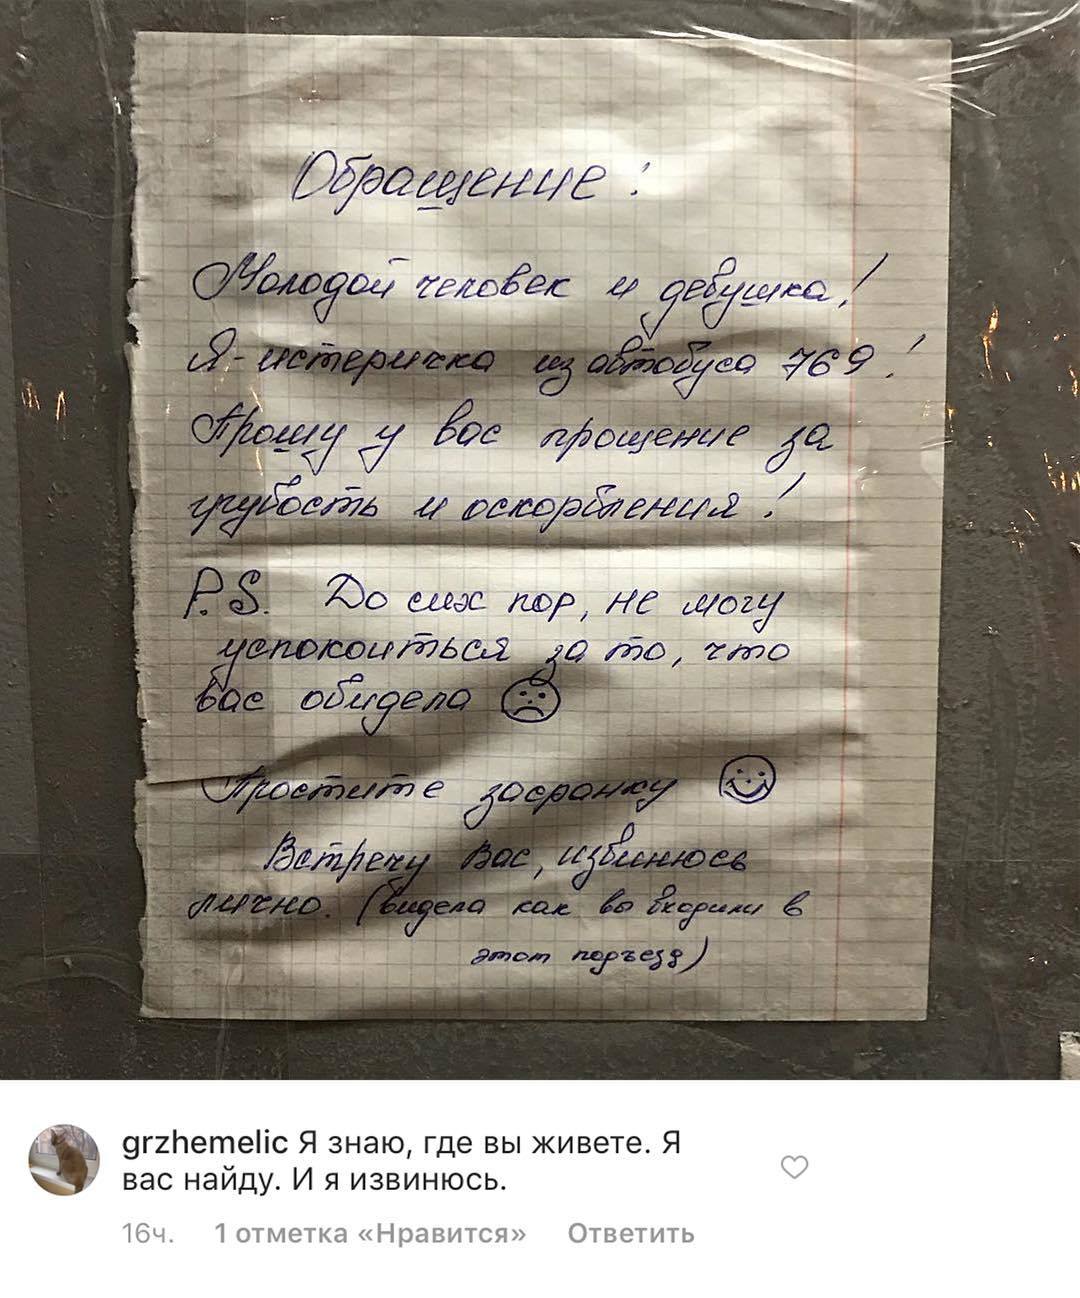 Обращение:
Молодой человек и девушка!
Я - истеричка из автобуса 769!
Прошу у вас прощение за
грубость и оскорбления!
P.S. До сих пор, не могу
успокоиться за то, что
вас обидела
Простите засранку
Встречу Вас, извинюсь
лично. (видела как вы входили в
этот подъезд)
grzhemelic Я знаю, где вы живете. Я
вас найду. И я извинюсь.
16ч. 1 отметка «Нравится» Ответить